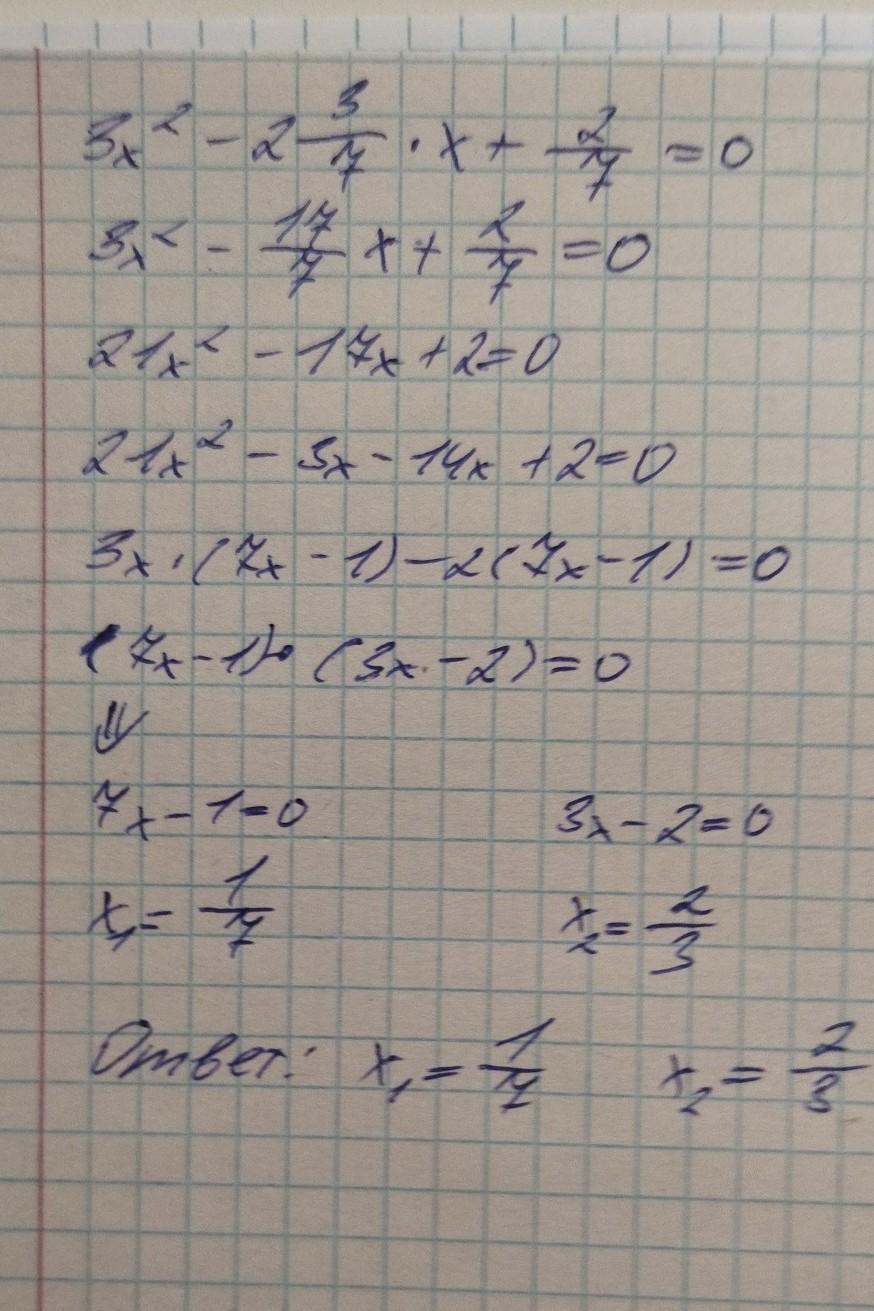 3x² - 2 3/7 · x + 2/7 = 0
3x² - 17/7 x + 2/7 = 0
21x² - 17x + 2 = 0
21x² - 3x - 14x + 2 = 0
3x · (7x - 1) - 2(7x - 1) = 0
(7x - 1) · (3x - 2) = 0
⇓
7x - 1 = 0 3x - 2 = 0
x₁ = 1/7 x₂ = 2/3
Ответ: x₁ = 1/7 x₂ = 2/3